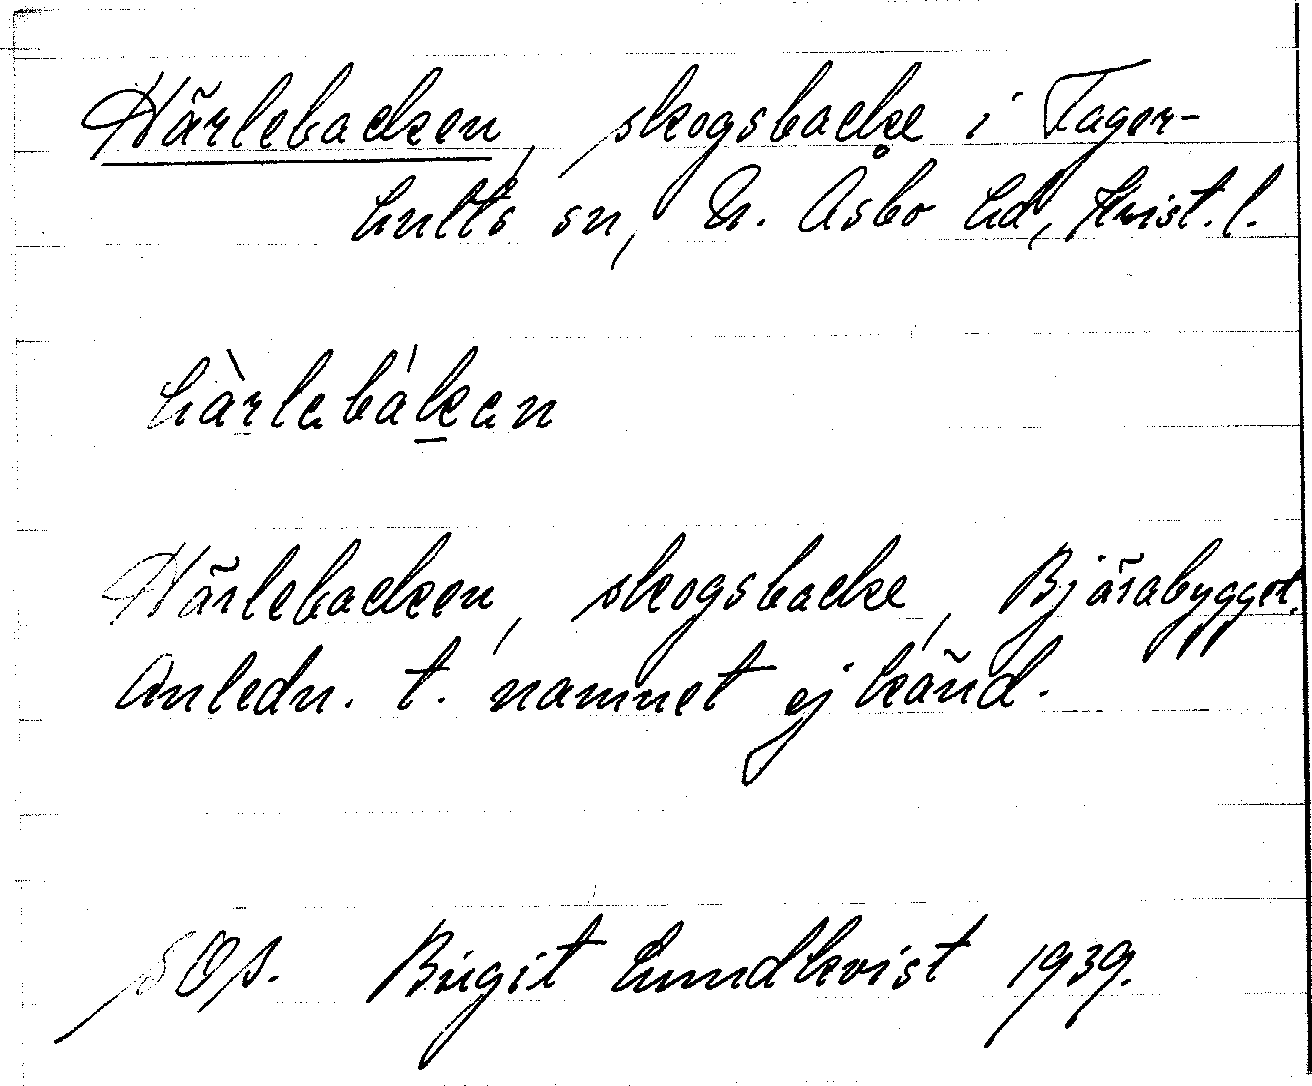 Härlebacken, skogsbacke i Fager-
hults sn, N. Åsbo hd, Krist. l.
hàrlebáken
Härlebacken, skogsbacke, Bjärabygget.
Anledn. t. namnet ej känd.
Birgit Lundkvist 1939.